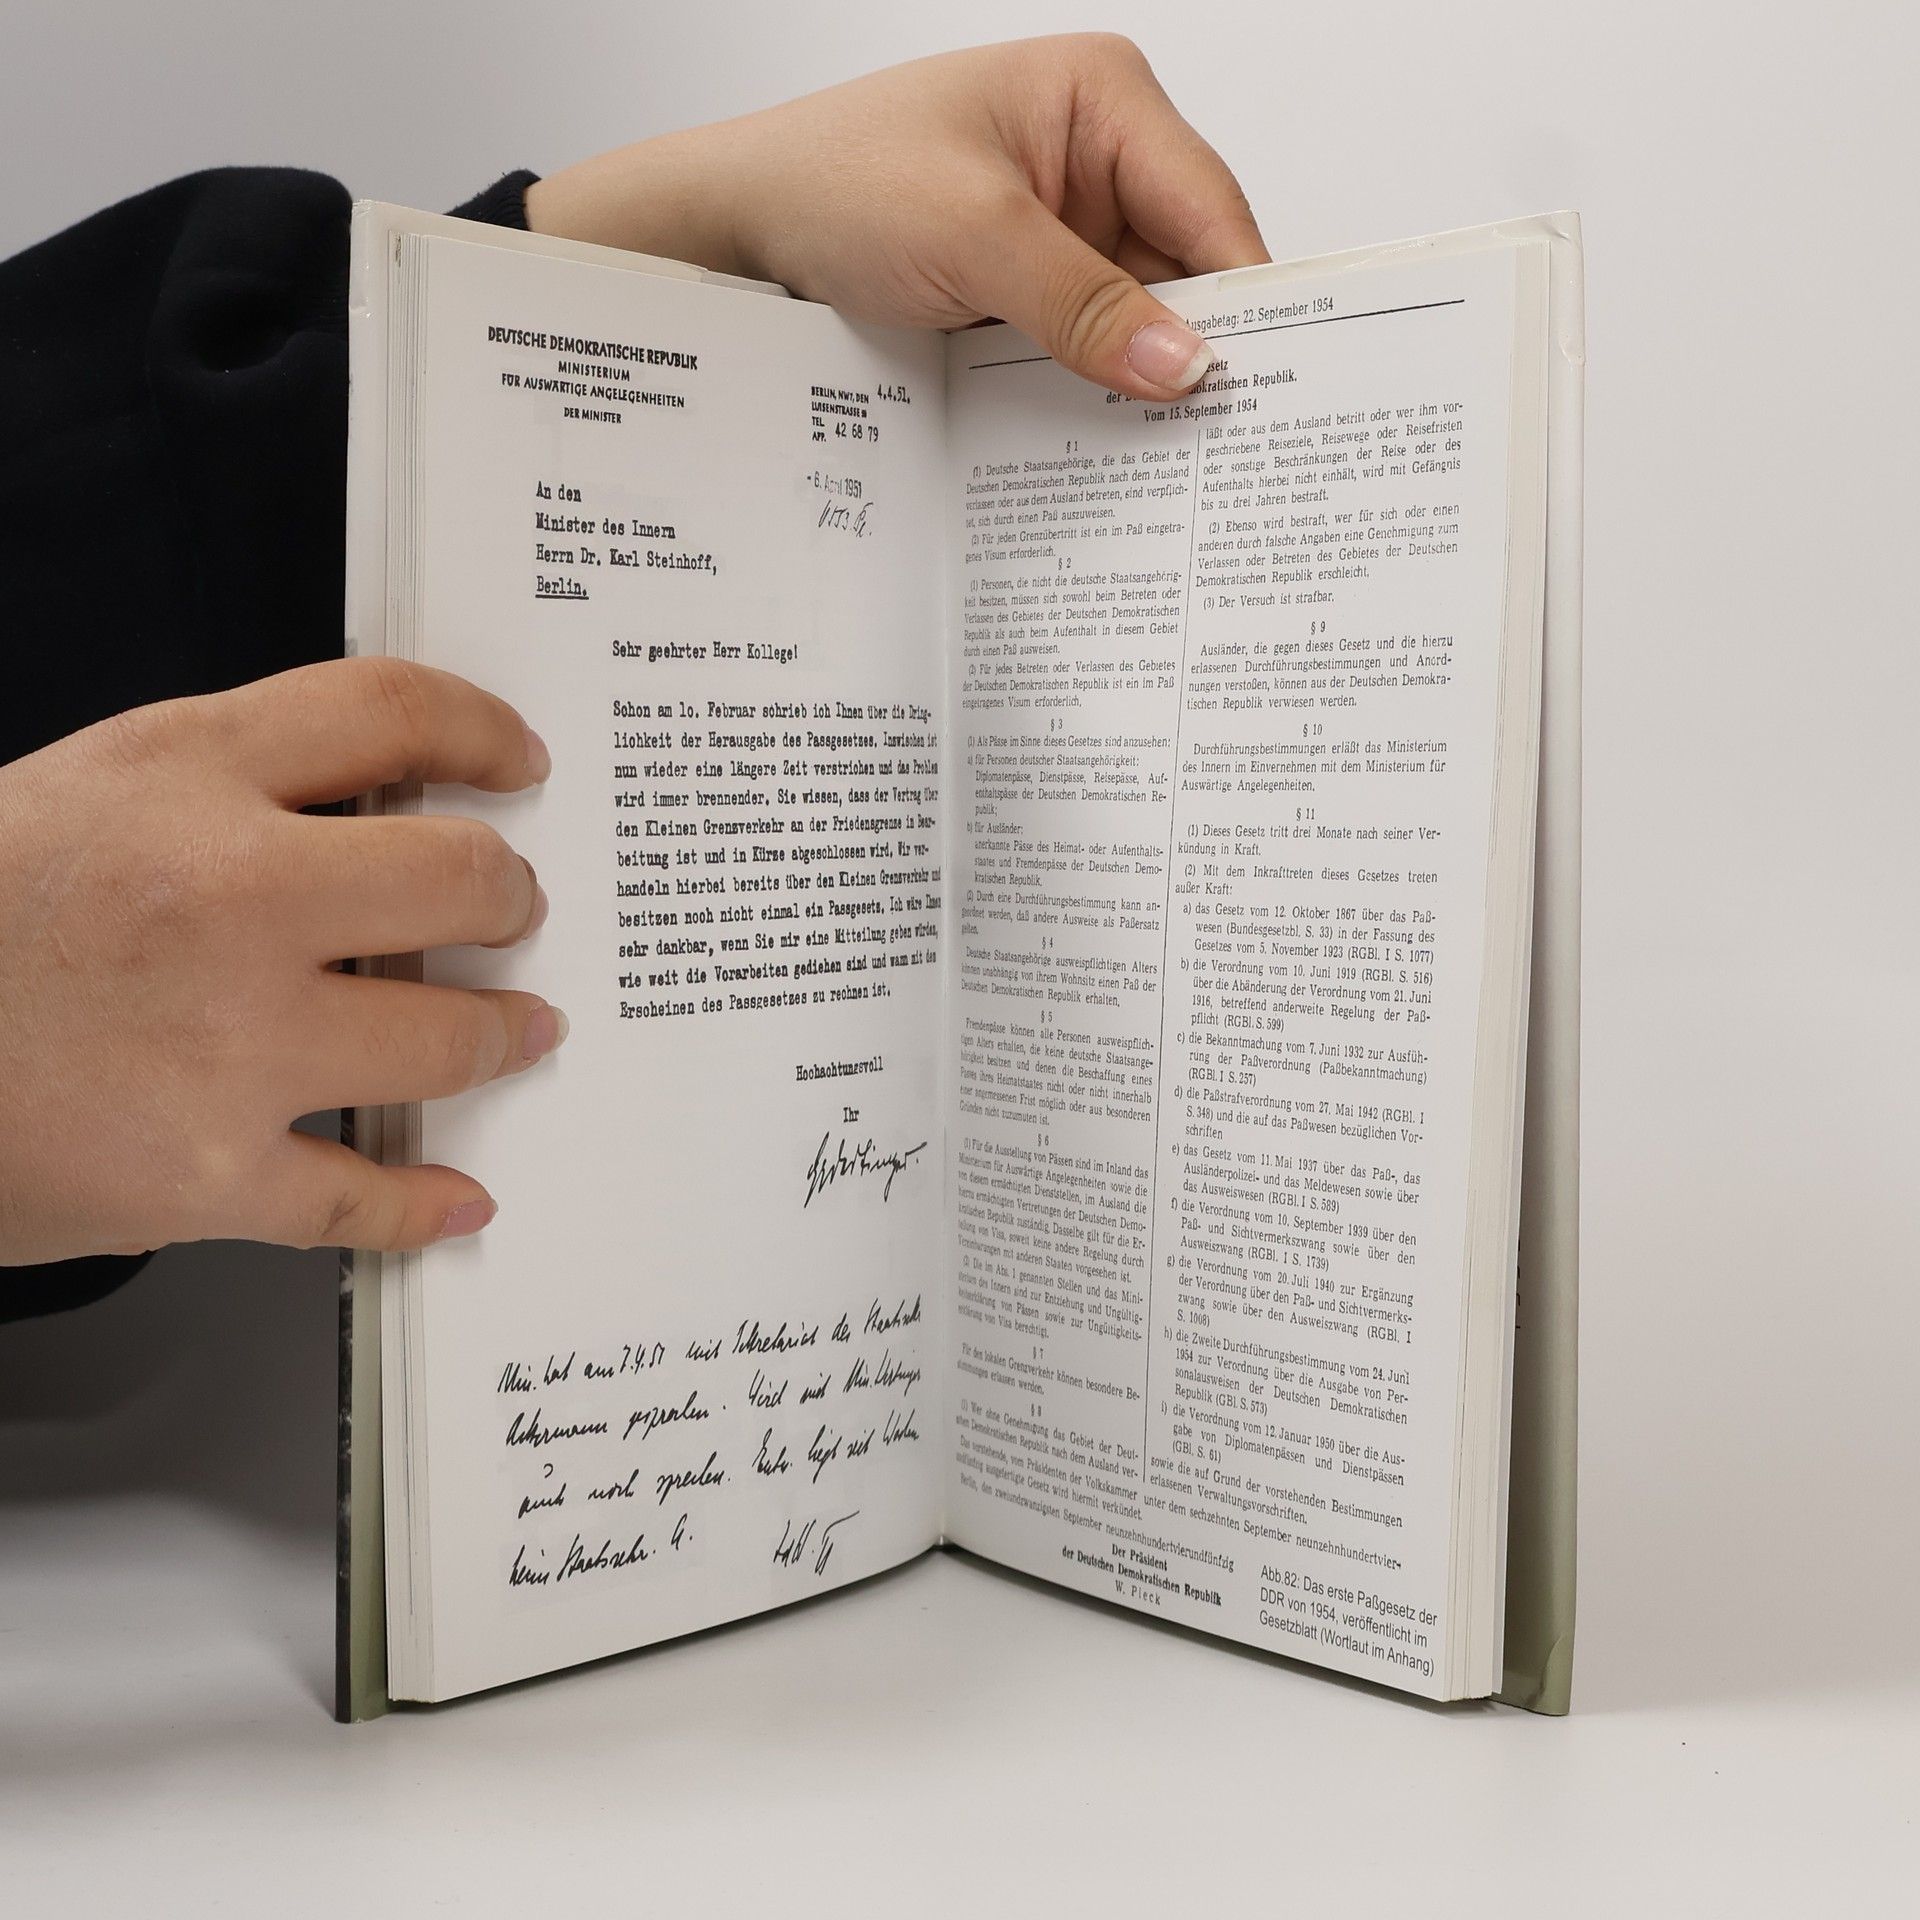 DEUTSCHE DEMOKRATISCHE REPUBLIK
MINISTERIUM
FÜR AUSWÄRTIGE ANGELEGENHEITEN
DER MINISTER
BERLIN, NW7, DEN 4.4.51.
LUISENSTRASSE
TEL. 42 68 79
APP.
- 6. April 1951
An den
Minister des Innern
Herrn Dr. Karl Steinhoff,
Berlin.
Sehr geehrter Herr Kollege!
Schon am lo. Februar schrieb ich Ihnen über die Dring-
lichkeit der Herausgabe des Passgesetzes. Inzwischen ist
nun wieder eine längere Zeit verstrichen und das Problem
wird immer brennender. Sie wissen, dass der Vertrag über
den Kleinen Grenzverkehr an der Friedensgrenze in Bear-
beitung ist und in Kürze abgeschlossen wird. Wir ver-
handeln hierbei bereits über den Kleinen Grenzverkehr und
besitzen noch nicht einmal ein Passgesetz. Ich wäre Ihnen
sehr dankbar, wenn Sie mir eine Mitteilung geben würden,
wie weit die Vorarbeiten gediehen sind und wann mit dem
Erscheinen des Passgesetzes zu rechnen ist.
Hochachtungsvoll
Ihr
Min. hat am 7.4.51 mit Sekretariat des
Ackermann gesprochen. Wird mit Min.
auch noch sprechen. Entw. liegt seit Wochen
beim Staatssekr. A.
Ausgabetag: 22. September 1954
esetz
der D mokratischen Republik.
Vom 15. September 1954
§ 1
(1) Deutsche Staatsangehörige, die das Gebiet der
Deutschen Demokratischen Republik nach dem Ausland
verlassen oder aus dem Ausland betreten, sind verpflich-
tet, sich durch einen Paß auszuweisen.
(2) Für jeden Grenzübertritt ist ein im Paß eingetra-
genes Visum erforderlich.
§ 2
(1) Personen, die nicht die deutsche Staatsangehörig-
keit besitzen, müssen sich sowohl beim Betreten oder
Verlassen des Gebietes der Deutschen Demokratischen
Republik als auch beim Aufenthalt in diesem Gebiet
durch einen Paß ausweisen.
(2) Für jedes Betreten oder Verlassen des Gebietes
der Deutschen Demokratischen Republik ist ein im Paß
eingetragenes Visum erforderlich.
§ 3
(1) Als Pässe im Sinne dieses Gesetzes sind anzusehen:
a) für Personen deutscher Staatsangehörigkeit:
Diplomatenpässe, Dienstpässe, Reisepässe, Auf-
enthaltspässe der Deutschen Demokratischen Re-
publik;
b) für Ausländer:
anerkannte Pässe des Heimat- oder Aufenthalts-
staates und Fremdenpässe der Deutschen Demo-
kratischen Republik.
(2) Durch eine Durchführungsbestimmung kann an-
geordnet werden, daß andere Ausweise als Paßersatz
gelten.
§ 4
Deutsche Staatsangehörige ausweispflichtigen Alters
können unabhängig von ihrem Wohnsitz einen Paß der
Deutschen Demokratischen Republik erhalten.
§ 5
Fremdenpässe können alle Personen ausweispflich-
tigen Alters erhalten, die keine deutsche Staatsange-
hörigkeit besitzen und denen die Beschaffung eines
Passes ihres Heimatstaates nicht oder nicht innerhalb
einer angemessenen Frist möglich oder aus besonderen
Gründen nicht zuzumuten ist.
§ 6
(1) Für die Ausstellung von Pässen sind im Inland das
Ministerium für Auswärtige Angelegenheiten sowie die
von diesem ermächtigten Dienststellen, im Ausland die
hierzu ermächtigten Vertretungen der Deutschen Demo-
kratischen Republik zuständig. Dasselbe gilt für die Er-
teilung von Visa, soweit keine andere Regelung durch
Vereinbarungen mit anderen Staaten vorgesehen ist.
(2) Die im Abs. 1 genannten Stellen und das Mini-
sterium des Innern sind zur Entziehung und Ungültig-
keitserklärung von Pässen sowie zur Ungültigkeits-
erklärung von Visa berechtigt.
§ 7
Für den lokalen Grenzverkehr können besondere Be-
stimmungen erlassen werden.
§ 8
(1) Wer ohne Genehmigung das Gebiet der Deut-
schen Demokratischen Republik nach dem Ausland ver-
läßt oder aus dem Ausland betritt oder wer ihm vor-
geschriebene Reiseziele, Reisewege oder Reisefristen
oder sonstige Beschränkungen der Reise oder des
Aufenthalts hierbei nicht einhält, wird mit Gefängnis
bis zu drei Jahren bestraft.
(2) Ebenso wird bestraft, wer für sich oder einen
anderen durch falsche Angaben eine Genehmigung zum
Verlassen oder Betreten des Gebietes der Deutschen
Demokratischen Republik erschleicht.
(3) Der Versuch ist strafbar.
§ 9
Ausländer, die gegen dieses Gesetz und die hierzu
erlassenen Durchführungsbestimmungen und Anord-
nungen verstoßen, können aus der Deutschen Demokra-
tischen Republik verwiesen werden.
§ 10
Durchführungsbestimmungen erläßt das Ministerium
des Innern im Einvernehmen mit dem Ministerium für
Auswärtige Angelegenheiten.
§ 11
(1) Dieses Gesetz tritt drei Monate nach seiner Ver-
kündung in Kraft.
(2) Mit dem Inkrafttreten dieses Gesetzes treten
außer Kraft:
a) das Gesetz vom 12. Oktober 1867 über das Paß-
wesen (Bundesgesetzbl. S. 33) in der Fassung des
Gesetzes vom 5. November 1923 (RGBl. I S. 1077)
b) die Verordnung vom 10. Juni 1919 (RGBl. S. 516)
über die Abänderung der Verordnung vom 21. Juni
1916, betreffend anderweite Regelung der Paß-
pflicht (RGBl. S. 599)
c) die Bekanntmachung vom 7. Juni 1932 zur Ausfüh-
rung der Paßverordnung (Paßbekanntmachung)
(RGBl. I S. 257)
d) die Paßstrafverordnung vom 27. Mai 1942 (RGBl. I
S. 348) und die auf das Paßwesen bezüglichen Vor-
schriften
e) das Gesetz vom 11. Mai 1937 über das Paß-, das
Ausländerpolizei- und das Meldewesen sowie über
das Ausweiswesen (RGBl. I S. 589)
f) die Verordnung vom 10. September 1939 über den
Paß- und Sichtvermerkszwang sowie über den
Ausweiszwang (RGBl. I S. 1739)
g) die Verordnung vom 20. Juli 1940 zur Ergänzung
der Verordnung über den Paß- und Sichtvermerks-
zwang sowie über den Ausweiszwang (RGBl. I
S. 1008)
h) die Zweite Durchführungsbestimmung vom 24. Juni
1954 zur Verordnung über die Ausgabe von Per-
sonalausweisen der Deutschen Demokratischen
Republik (GBl. S. 573)
i) die Verordnung vom 12. Januar 1950 über die Aus-
gabe von Diplomatenpässen und Dienstpässen
(GBl. S. 61)
sowie die auf Grund der vorstehenden Bestimmungen
erlassenen Verwaltungsvorschriften.
Das vorstehende, vom Präsidenten der Volkskammer unter dem sechzehnten September neunzehnhundertvier-
undfünfzig ausgefertigte Gesetz wird hiermit verkündet.
Berlin, den zweiundzwanzigsten September neunzehnhundertvierundfünfzig
Der Präsident
der Deutschen Demokratischen Republik
W. Pieck
Abb.82: Das erste Paßgesetz der
DDR von 1954, veröffentlicht im
Gesetzblatt (Wortlaut im Anhang)